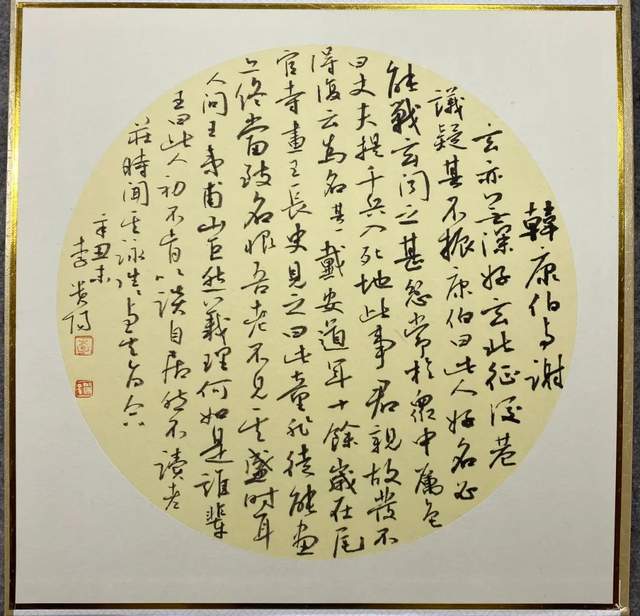 韓康伯與謝
玄亦無深好玄北征後巷
議疑其不振康伯曰此人好名必
能戰玄聞之甚忿常於眾中厲色
曰丈夫提千兵入死地此事君親故發不
得復云為名其戴安道年十餘歲在
官寺畫王長史見之曰此童非徒能畫
亦終當致名恨吾老不見其盛時耳
人問王夷甫山巨源義理何如是誰輩
王曰此人初不肯以談自居然不讀老
莊時聞其詠往往與其旨合
辛丑末
李貴